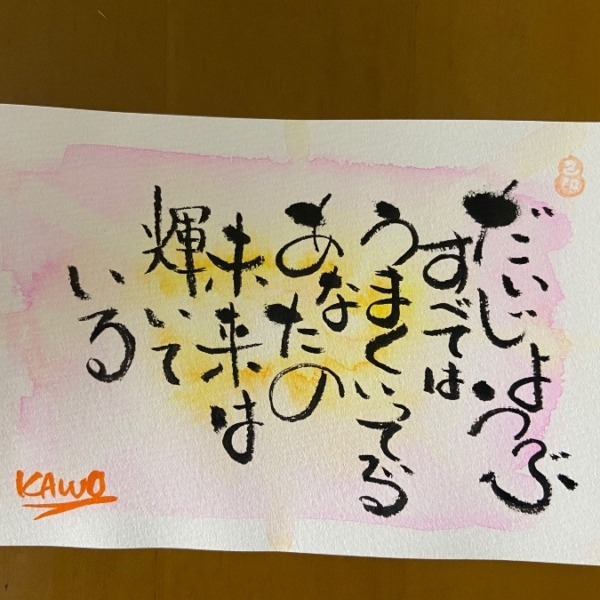 だいじょうぶ
すべては
うまくいってる
あなたの
未来は
輝いて
いる
KAWO